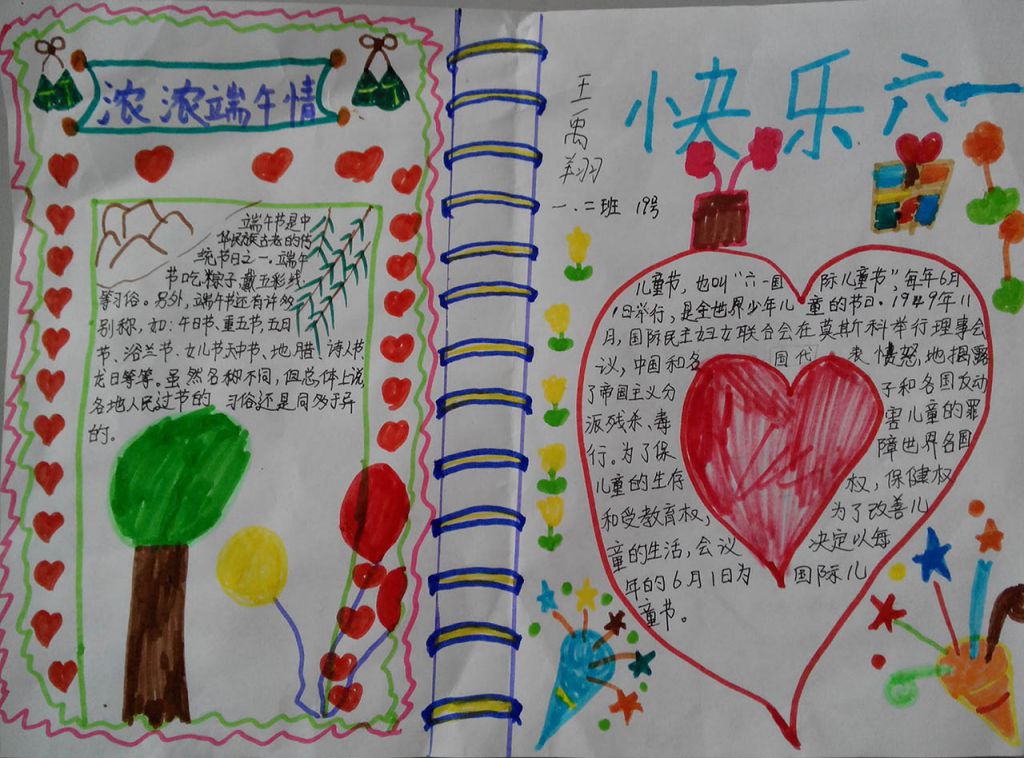 浓浓端午情
端午节是中
华民族古老的传
统节日之一。端午
节吃粽子,戴五彩线
等习俗。另外,端午节还有许多
别称,如:午日节、重五节,五月
节、浴兰节、女儿节天中节、地腊、诗人节
龙日等等。虽然名称不同,但总体上说
各地人民过节的习俗还是同多于异
的。
快乐六一
王禹翔
一.二班 19号
儿童节,也叫“六一国际儿童节”,每年6月
1日举行,是全世界少年儿童的节日。1949年11
月,国际民主妇女联合会在莫斯科举行理事会
议,中国和各国代表愤怒地揭露
了帝国主义分子和各国反动
派残杀、毒害儿童的罪
行。为了保障世界各国
儿童的生存权,保健权
和受教育权,为了改善儿
童的生活,会议决定以每
年的6月1日为国际儿
童节。